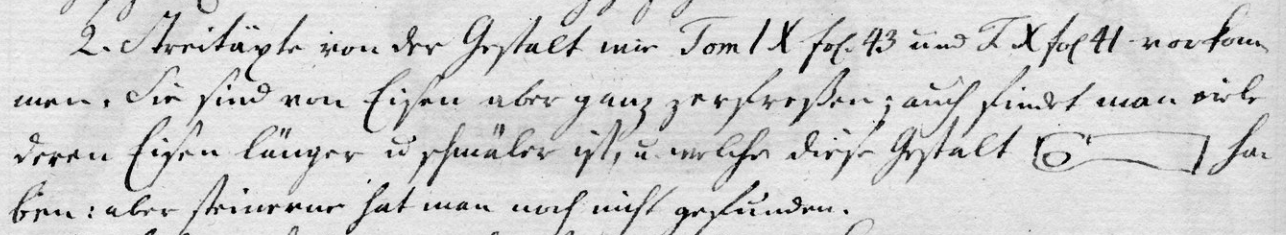 2. Streitäxte von der Gestalt wie Tom IX fol. 43 und T. X fol 41 vorkom
men. Sie sind von Eisen aber ganz zerfreßen; auch findet man viele
deren Eisen länger u schmäler ist, u. welche diese Gestalt ha-
ben: aber steinerne hat man noch nicht gefunden.